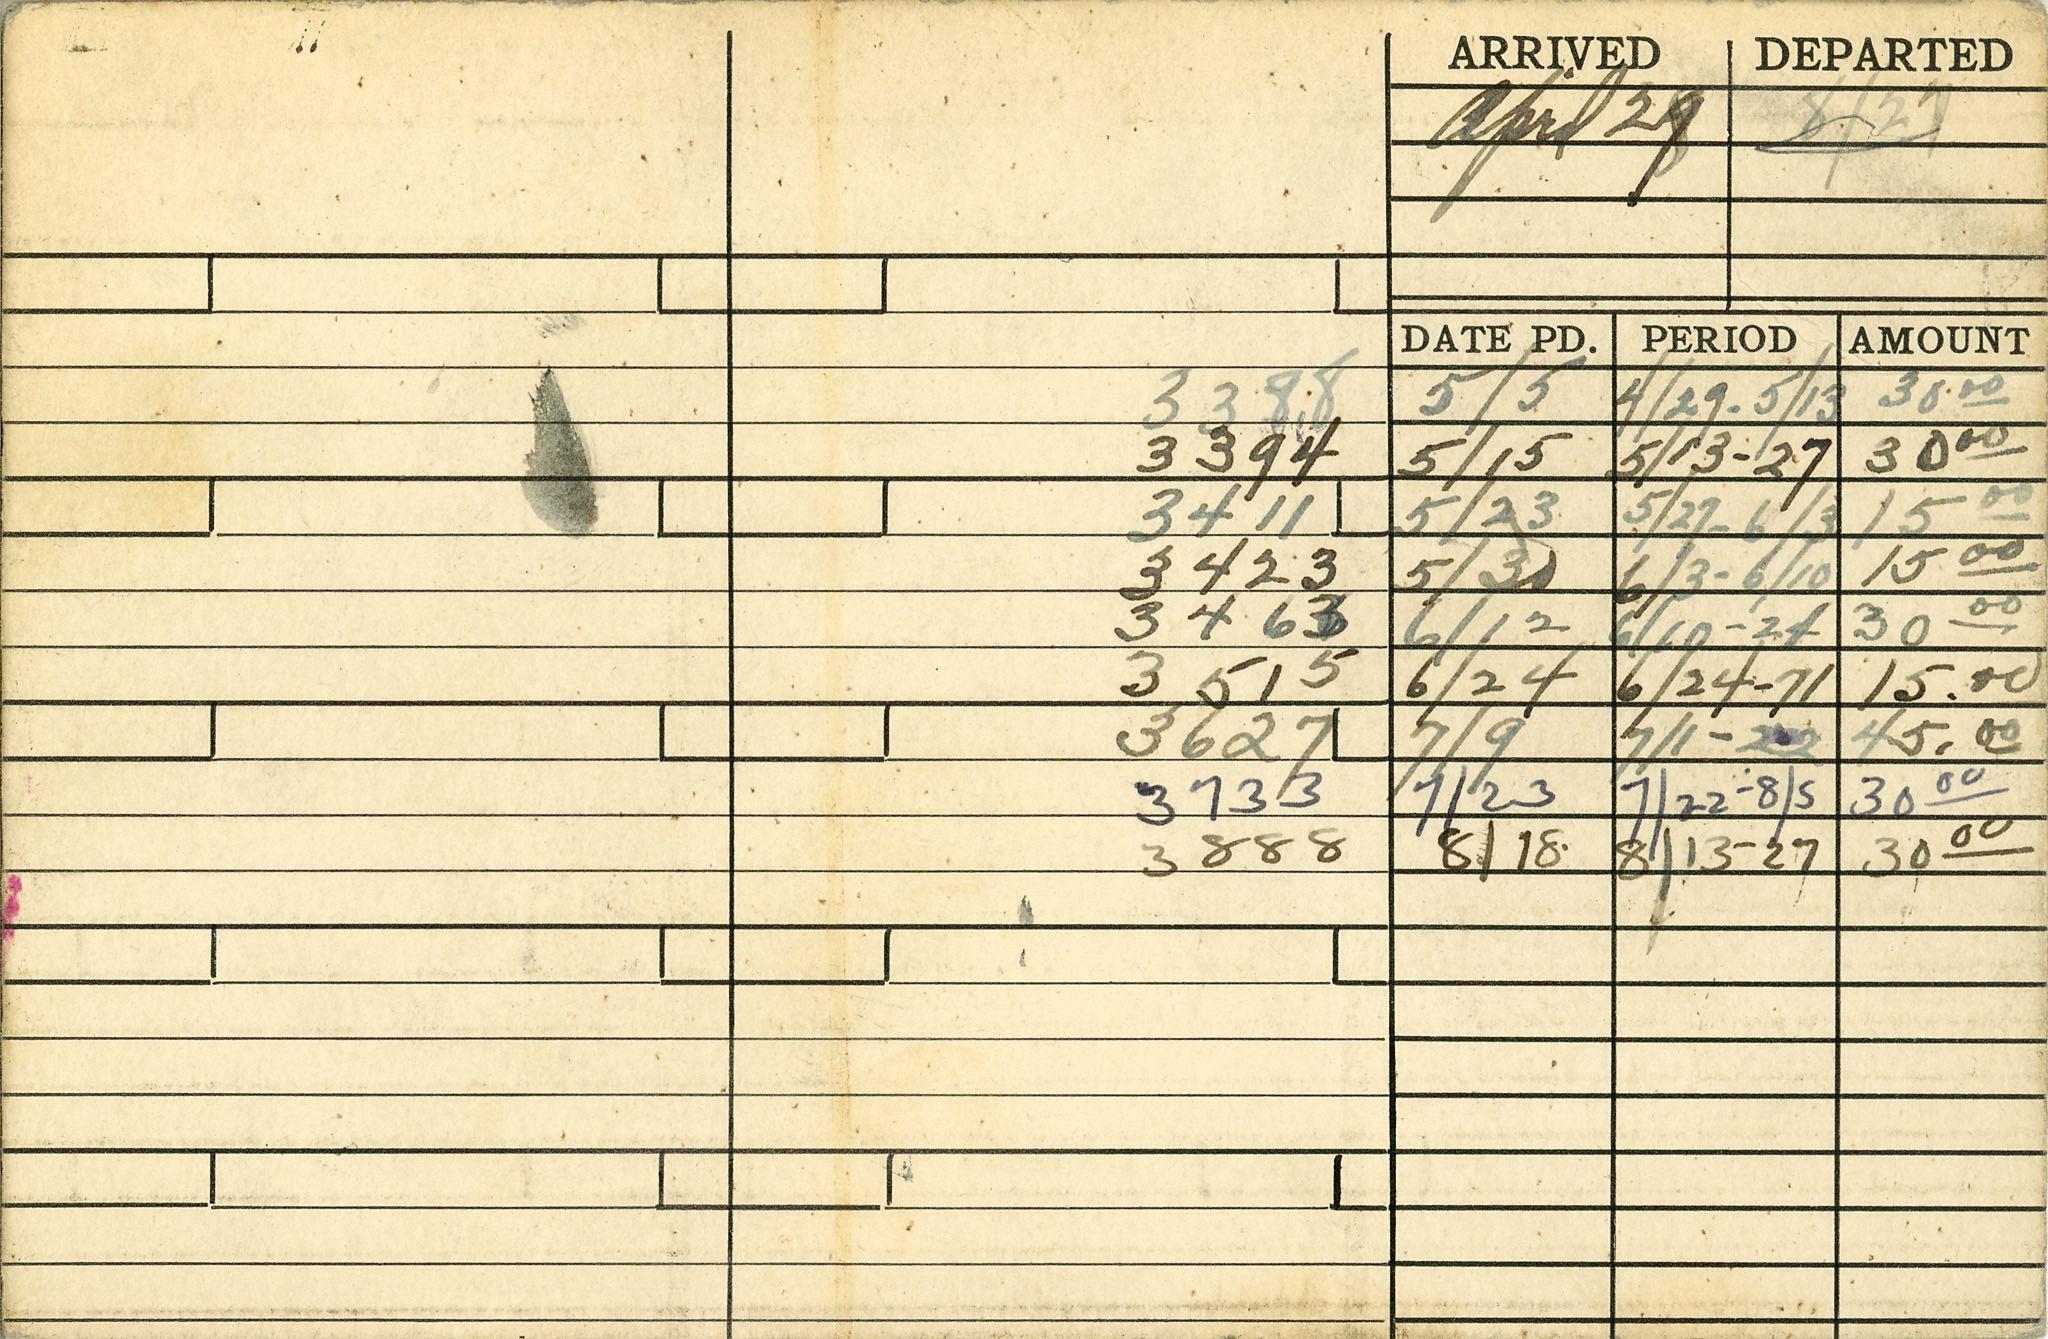 ARRIVED DEPARTED
April 29 8/27
DATE PD. PERIOD AMOUNT
3388 5/5 4/29-5/13 30.00
3394 5/15 5/13-27 30 00
3411 5/23 5/27-6/3 15 00
3423 5/30 6/3-6/10 15 00
3463 6/12 6/10-24 30 00
3515 6/24 6/24-71 15.00
3627 7/9 7/1-22 45.00
3733 7/23 7/22-8/5 30 00
3888 8/18 8/13-27 30 00